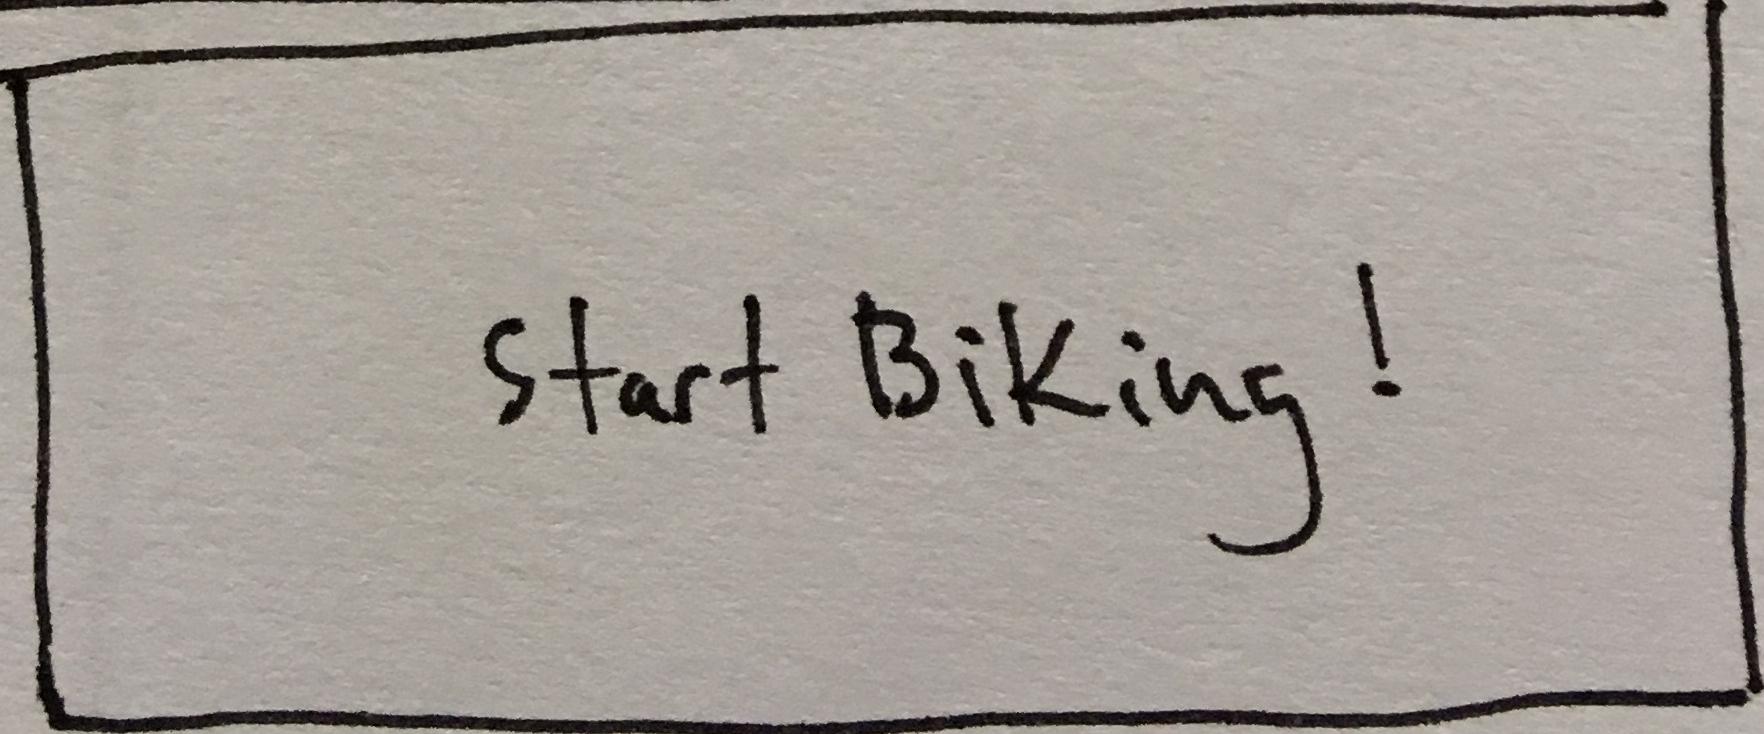 Start Biking!